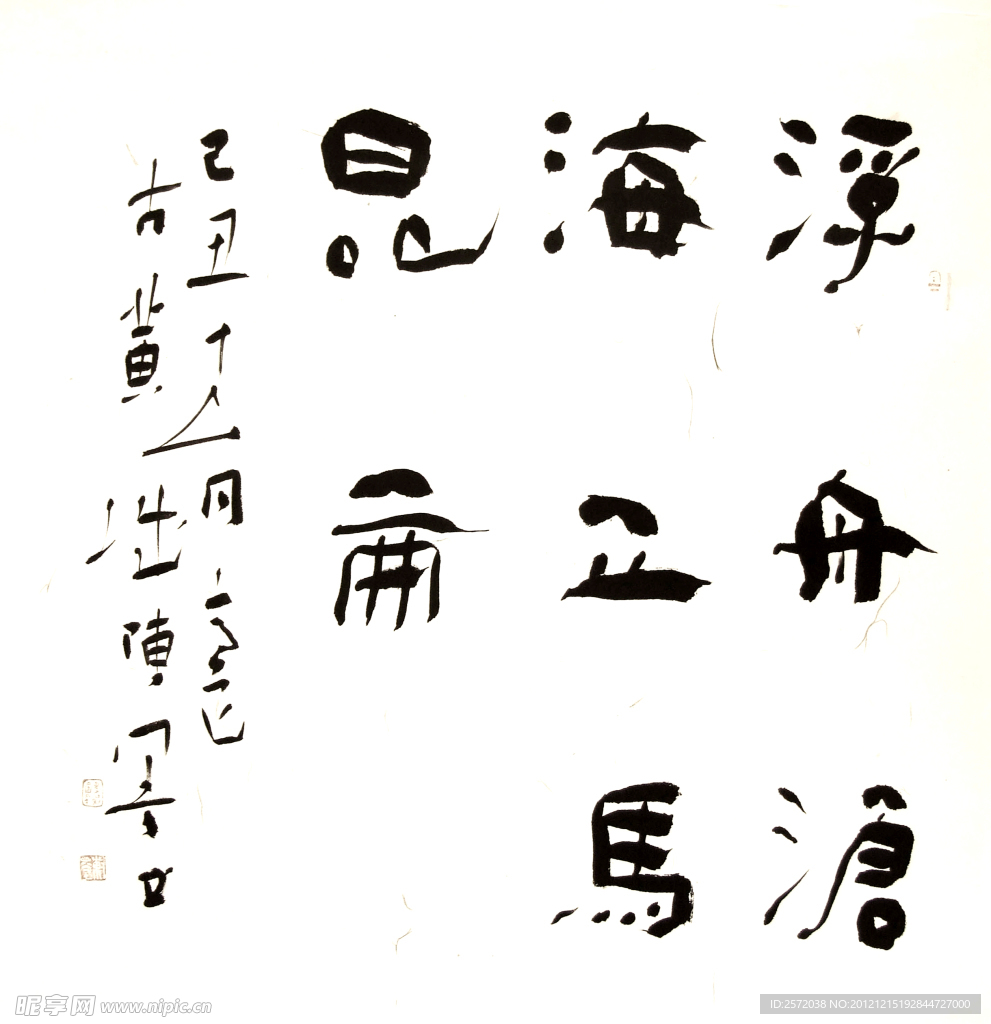 浮舟滄
海立馬
昆侖
己丑十月
古黃陳
昵享网 www.nipic.cn
ID:2572038 NO:20121215192844727000